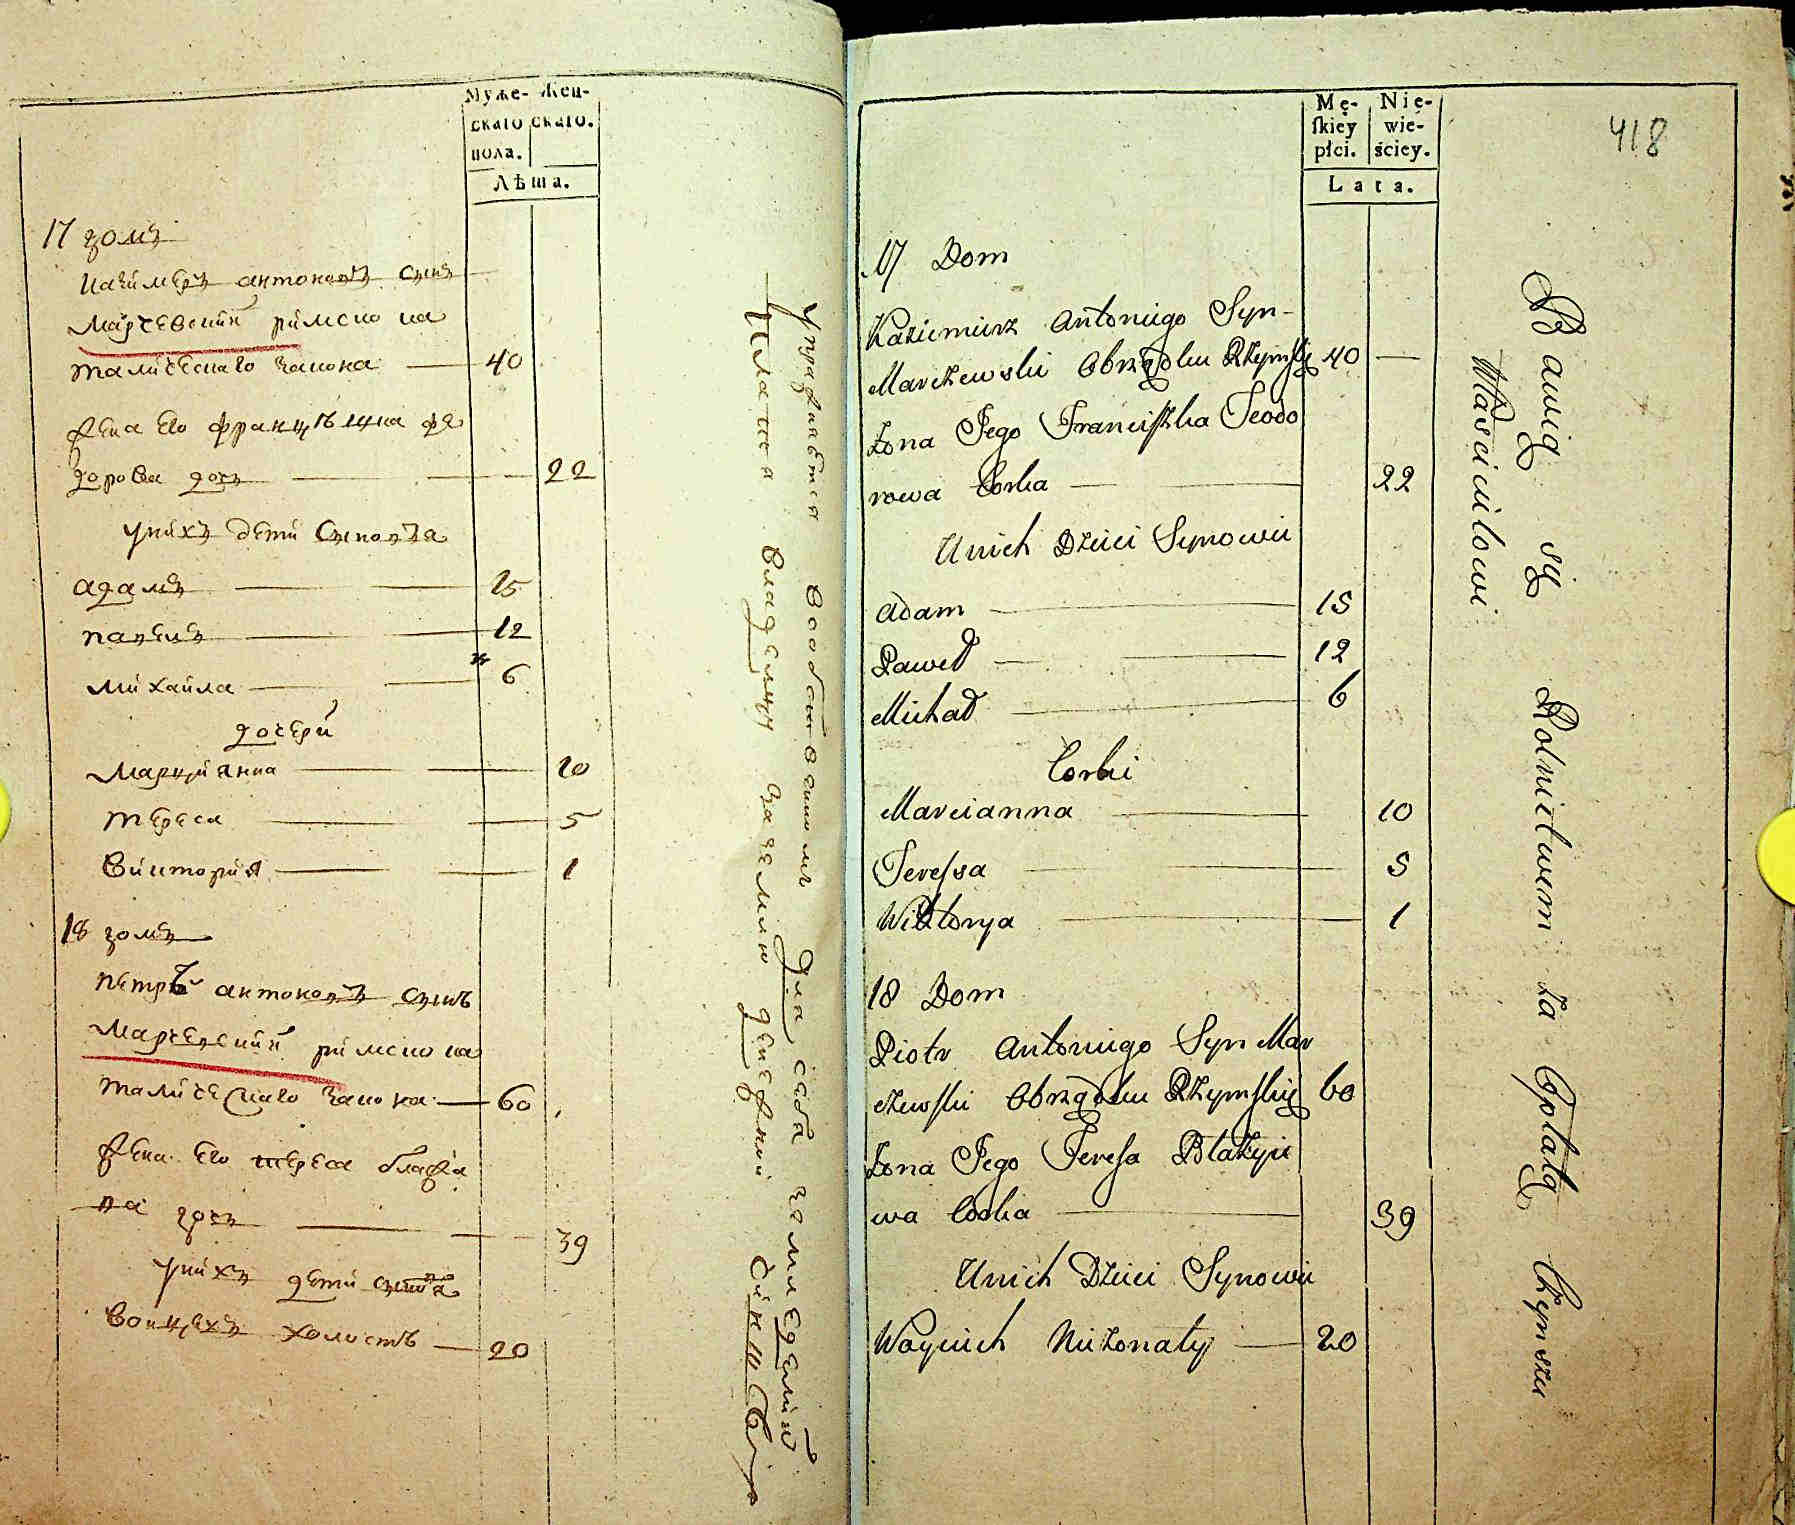 Муже-
скаго
пола.
Жен-
скаго.
Лѣта.
17 домъ
Казимеръ антоновъ сынъ
Марчевский римско ка
толическаго закона 40
жена его францѣшка фе
дорова дочь 22
у нихъ дети сыновья
адамъ 15
павелъ 12
михайла 6
дочери
марцыянна 10
тереса 5
викторыя 1
18 домъ
петръ антоновъ сынъ
Марчевский римско ка
толическаго закона 60
жена его тереса блажѣ
ва дочь 39
у нихъ дети сыновья
войцехъ холостъ 20
упражняется вообще своими для себя земледелиемъ
платя владельцу за землю денежный чиншъ
418
Mę-
ſkiey
płci.
Nie-
wie-
ściey.
Lata.
17 Dom
Kazimierz Antoniego Syn
Marczewski Obrządku Rzymſki 40
Żona Jego Franciſzka Teodo
rowa Corka 22
U nich Dzieci Synowie
Adam 15
Paweł 12
Michał 6
Corki
Marcianna 10
Tereſsa 5
Wiktorya 1
18 Dom
Piotr Antoniego Syn Mar
czewſki Obrządku Rzymſkie 60
Żona Jego Tereſa Błażyie
wa Corka 39
U nich Dzieci Synowie
Woyciech Nieżonaty 20
Bawią się Rolnictwem za Opłatą Czynszu
Właścicielowi